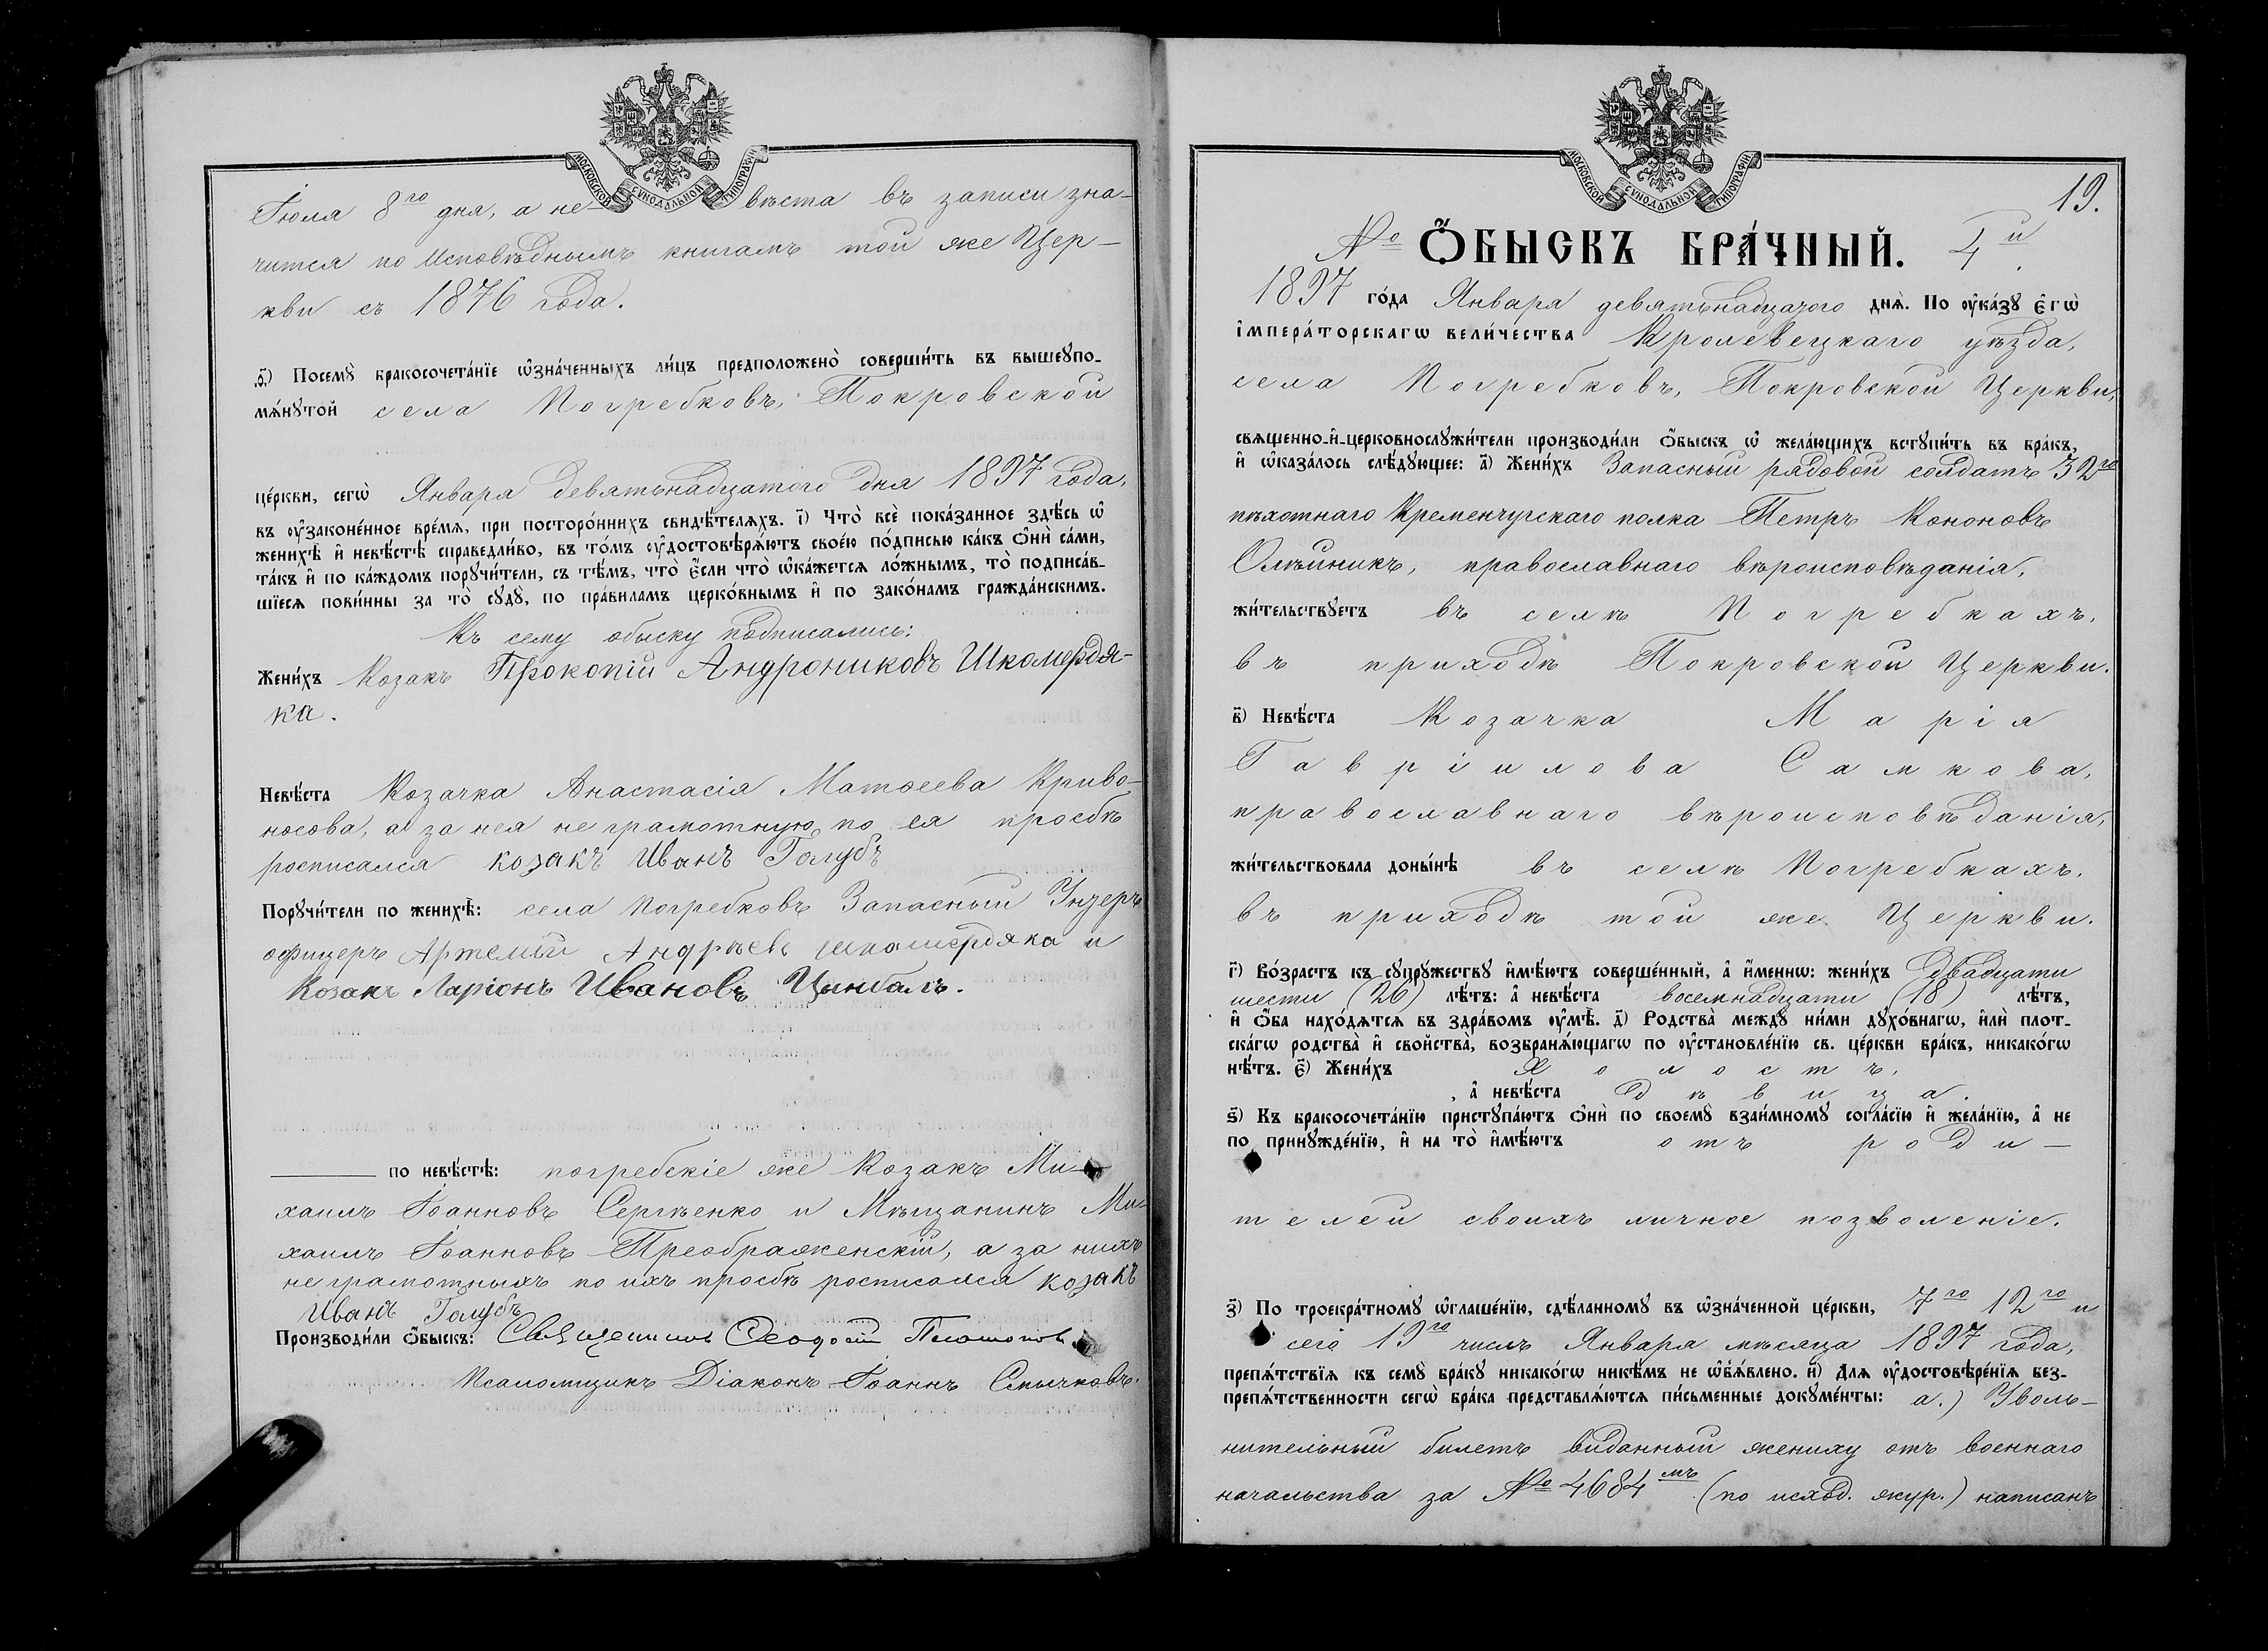 МОСКОВСКОЙ СѴНОДАЛЬНОЙ ТИПОГРАФІИ
Іюля 8го дня, а не- вѣста въ записи зна-
чится по Исповѣднымъ книгамъ той же Цер-
кви съ 1876 года.
.ѳ҃.) Посемꙋ̀ бракосочета́нїе ѡ҆зна́ченныхъ ли́цъ предположено̀ соверши́ть въ вышеꙋпо-
мѧ́нꙋтой села Погребковъ, Покровской
це́ркви, сегѡ̀ Января девятьнадцатого дня 1897 года,
въ ᲂу҆законе́нное вре́мѧ, при посторо́ннихъ свидѣ́телѧхъ. і҃) Что̀ всѐ пока́занное здѣ́сь ѡ҆
женихѣ̀ и҆ невѣ́стѣ справедли́во, въ то́мъ ᲂу҆достовѣрѧ́ютъ свое́ю по́дписью ка́къ ѻ҆нѝ са́ми,
та́къ и҆ по ка́ждомъ порꙋчи́тели, съ тѣ́мъ, что̀ є҆́сли что̀ ѡ҆ка́жетсѧ ло́жнымъ, то̀ подписа́в-
шїесѧ пови́нны за то̀ сꙋдꙋ̀, по пра́виламъ церко́внымъ и҆ по зако́намъ гражда́нскимъ.
Къ сему обыску подписались:
Жени́хъ Козакъ Прокопій Андрониковъ Шкомердя-
ка.
Невѣ́ста Козачка Анастасія Матѳеева Криво-
носова, а за нея не грамотную, по ея просбѣ
росписался козакъ Иванъ Голубъ
Порꙋчи́тели по женихѣ̀: села Погребковъ Запасный Унтеръ
офицеръ Артемій Андрѣевъ Шкомердяка и
Козакъ Ларіонъ Ивановъ Цымбалъ.
по невѣ́стѣ: погребскіе же Козакъ Ми-
хаилъ Іоанновъ Сергѣенко и Мѣщанинъ Ми-
хаилъ Іоанновъ Преображенскій, а за нихъ
не грамотныхъ по ихъ просбѣ росписался козакъ
Иванъ Голубъ
Производи́ли ѻ҆́быскъ: Священникъ Ѳеодосій
Псаломщикъ Діаконъ Іоаннъ Смычковъ.
МОСКОВСКОЙ СѴНОДАЛЬНОЙ ТИПОГРАФІИ
19.
№ Ѻ҆́БЫСКЪ БРА́ЧНЫЙ. 4й.
1897 го́да Января девятьнадцатого днѧ̀. По ᲂу҆ка́зꙋ є҆гѡ̀
і҆мпера́торскагѡ вели́чества Кролевецкаго уѣзда,
села Погребковъ, Покровской Церкви,
свѧщенно-и҆-церковнослꙋжи́тели производи́ли ѻ҆́быскъ ѡ҆ жела́ющихъ встꙋпи́ть въ бра́къ,
и҆ ѡ҆каза́лось слѣ́дꙋющее: а҃) Жени́хъ Запасный рядовой солдатъ 32го
пѣхотнаго Кременчугскаго полка Петръ Кононовъ
Олѣйникъ, православнаго вѣроисповѣданія,
жи́тельствꙋетъ въ селѣ Погребкахъ,
въ приходѣ Покровской Церкви.
в҃) Невѣ́ста Козачка Марія
Гавріилова Самкова,
православнаго вѣроисповѣданія,
жи́тельствовала доны́нѣ въ селѣ Погребкахъ,
въ приходѣ той же Церкви.
г҃) Во́зрастъ къ сꙋпрꙋ́жествꙋ и҆мѣ́ютъ соверше́нный, а҆ и҆́менно: жени́хъ двадцати
шести (26) лѣ́тъ: а҆ невѣ́ста восемнадцати (18) лѣ́тъ,
и҆ ѻ҆́ба нахо́дѧтсѧ въ здра́вомъ ᲂу҆мѣ̀. д҃) Родства̀ междꙋ̀ ни́ми дꙋхо́внагѡ, и҆лѝ плот-
ска́гѡ родства̀ и҆ свойства̀, возбранѧ́ющагѡ по ᲂу҆становле́нїю св. це́ркви бра́къ, никако́гѡ
нѣ́тъ. є҃) Жени́хъ холостъ,
, а҆ невѣ́ста дѣвица.
ѕ҃) Къ бракосочета́нїю пристꙋпа́ютъ ѻ҆нѝ по своемꙋ̀ взаи́мномꙋ согла́сїю и҆ жела́нїю, а҆ не
по принꙋжде́нїю, и҆ на то̀ и҆мѣ́ютъ отъ роди-
телей своихъ личное позволеніе.
з҃) По троекра́тномꙋ ѡ҆глаше́нїю, сдѣ́ланномꙋ въ ѡ҆зна́ченной це́ркви, 7го 12го и
сего 19го числъ Января мѣсяца 1897 года,
препѧ́тствїѧ къ семꙋ̀ бра́кꙋ никако́гѡ никѣ́мъ не ѡ҆б̾ѧ́влено. и҃) Длѧ ᲂу҆достовѣре́нїѧ без-
препѧ́тственности сегѡ̀ бра́ка представлѧ́ютсѧ пи́сьменные докꙋме́нты: а.) Уволь-
нительный билетъ виданный жениху отъ военнаго
начальства за № 4684мъ (по исход. жур.) написанъ